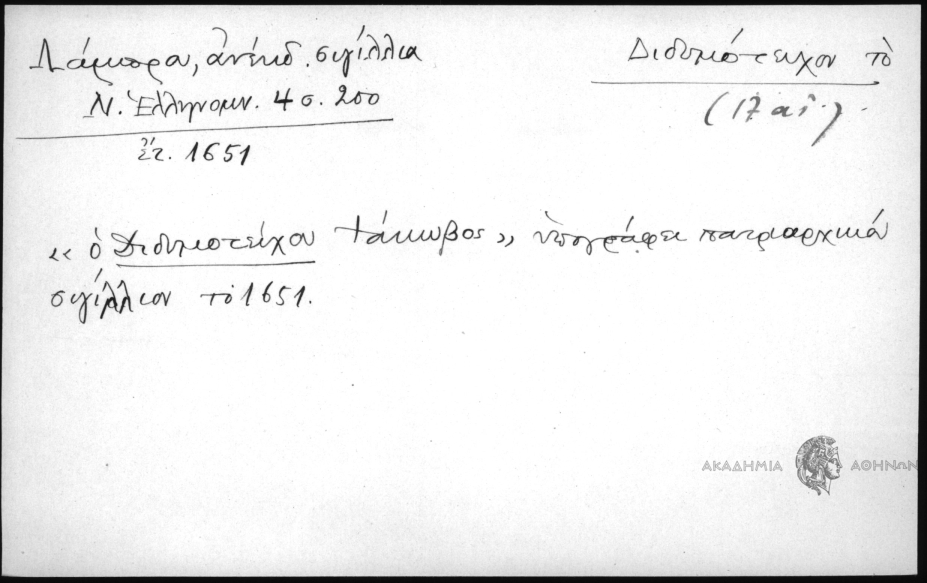 Λάμπρου, ἀνέκδ. σιγίλλια
Ν. Ἑλληνομν. 4 σ. 200
ἔτ. 1651
Διδυμότειχον τὸ
(17 αἰ.)
« ὁ Διδυμοτείχου Ἰάκωβος » ὑπογράφει πατριαρχικὸ
σιγίλλιον τὸ 1651.
ΑΚΑΔΗΜΙΑ ΑΘΗΝΩΝ